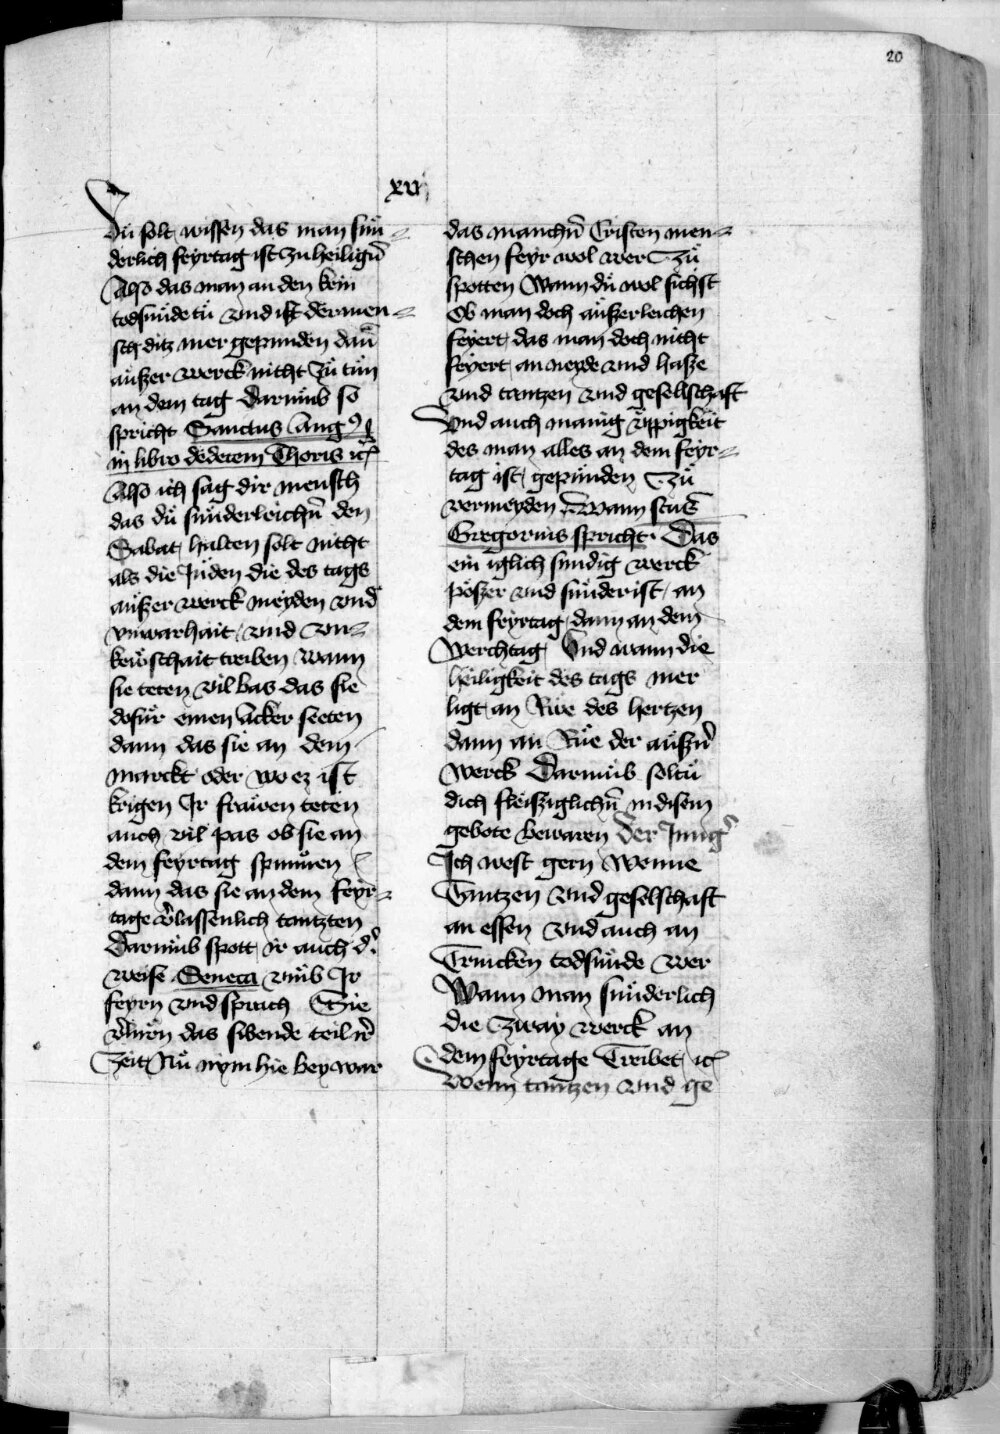 20
xvij
Du solt wissen das man sün-
derlich feyrtag ist zu heiligñ
Also das man an den kein
todsünde tü vnd ist der men-
sch ditz mer gepunden dañ
aüßer werck nicht zü tün
an dem tag Darümb so
spricht Sanctus Aug9
in libro de decem Thoris ꝛc
Also ich sag dir mensch
das dü sünderleichñ den
Sabat halten solt nicht
als die Jüden die des tags
aüßer werck meyden vnd
vnwarhait vnd vn-
kewschait treiben wann
sie teten vil bas das sie
dofür einen Acker seeten
dann das sie an dem
marckt oder wo ez ist
krigen Ir frawen teten
auch vil pas ob sie an
dem feyrtag spünnen
dann das sie an dem feyr-
tage v̉lassenlich tantzten
Darümb spott ir auch d̉
weise Seneca vmb Ir
feyrn vnd sprach Sie
v̉lürn das sibende teil ir̉
Zeit Nü nym hie bey war
das manchñ Cristen men-
schen feyr wol wer zü
spotten Wann dü wol sichst
Ob man doch aüßerleichen
feyert das man doch nicht
feyert an neyde vnd haße
vnd tantzen vnd gesellschaft
Vnd auch manig üppigkeit
des man alles an dem feyr-
tag ist gepünden zü
vermeyden Wann sctus
Gregorius spricht Das
ein iglich sündig werck
pößer vnd sünder ist an
dem feyrtag dann an dem
werchtag Vnd wann die
heiligkeit des tags mer
ligt an Rüe des hertzen
dann an Rüe der aüßn̉
werck Darümb soltü
dich fleißiglichñ in disem
gebote bewaren Der Jung̉
Ich west gern Wenne
Tantzen vnd geselschaft
an essen vnd auch an
Trincken todsünde wer
Wann man sünderlich
die zway werck an
dem feyrtage Treibet ꝛc
Wenn tantzen vnd ge